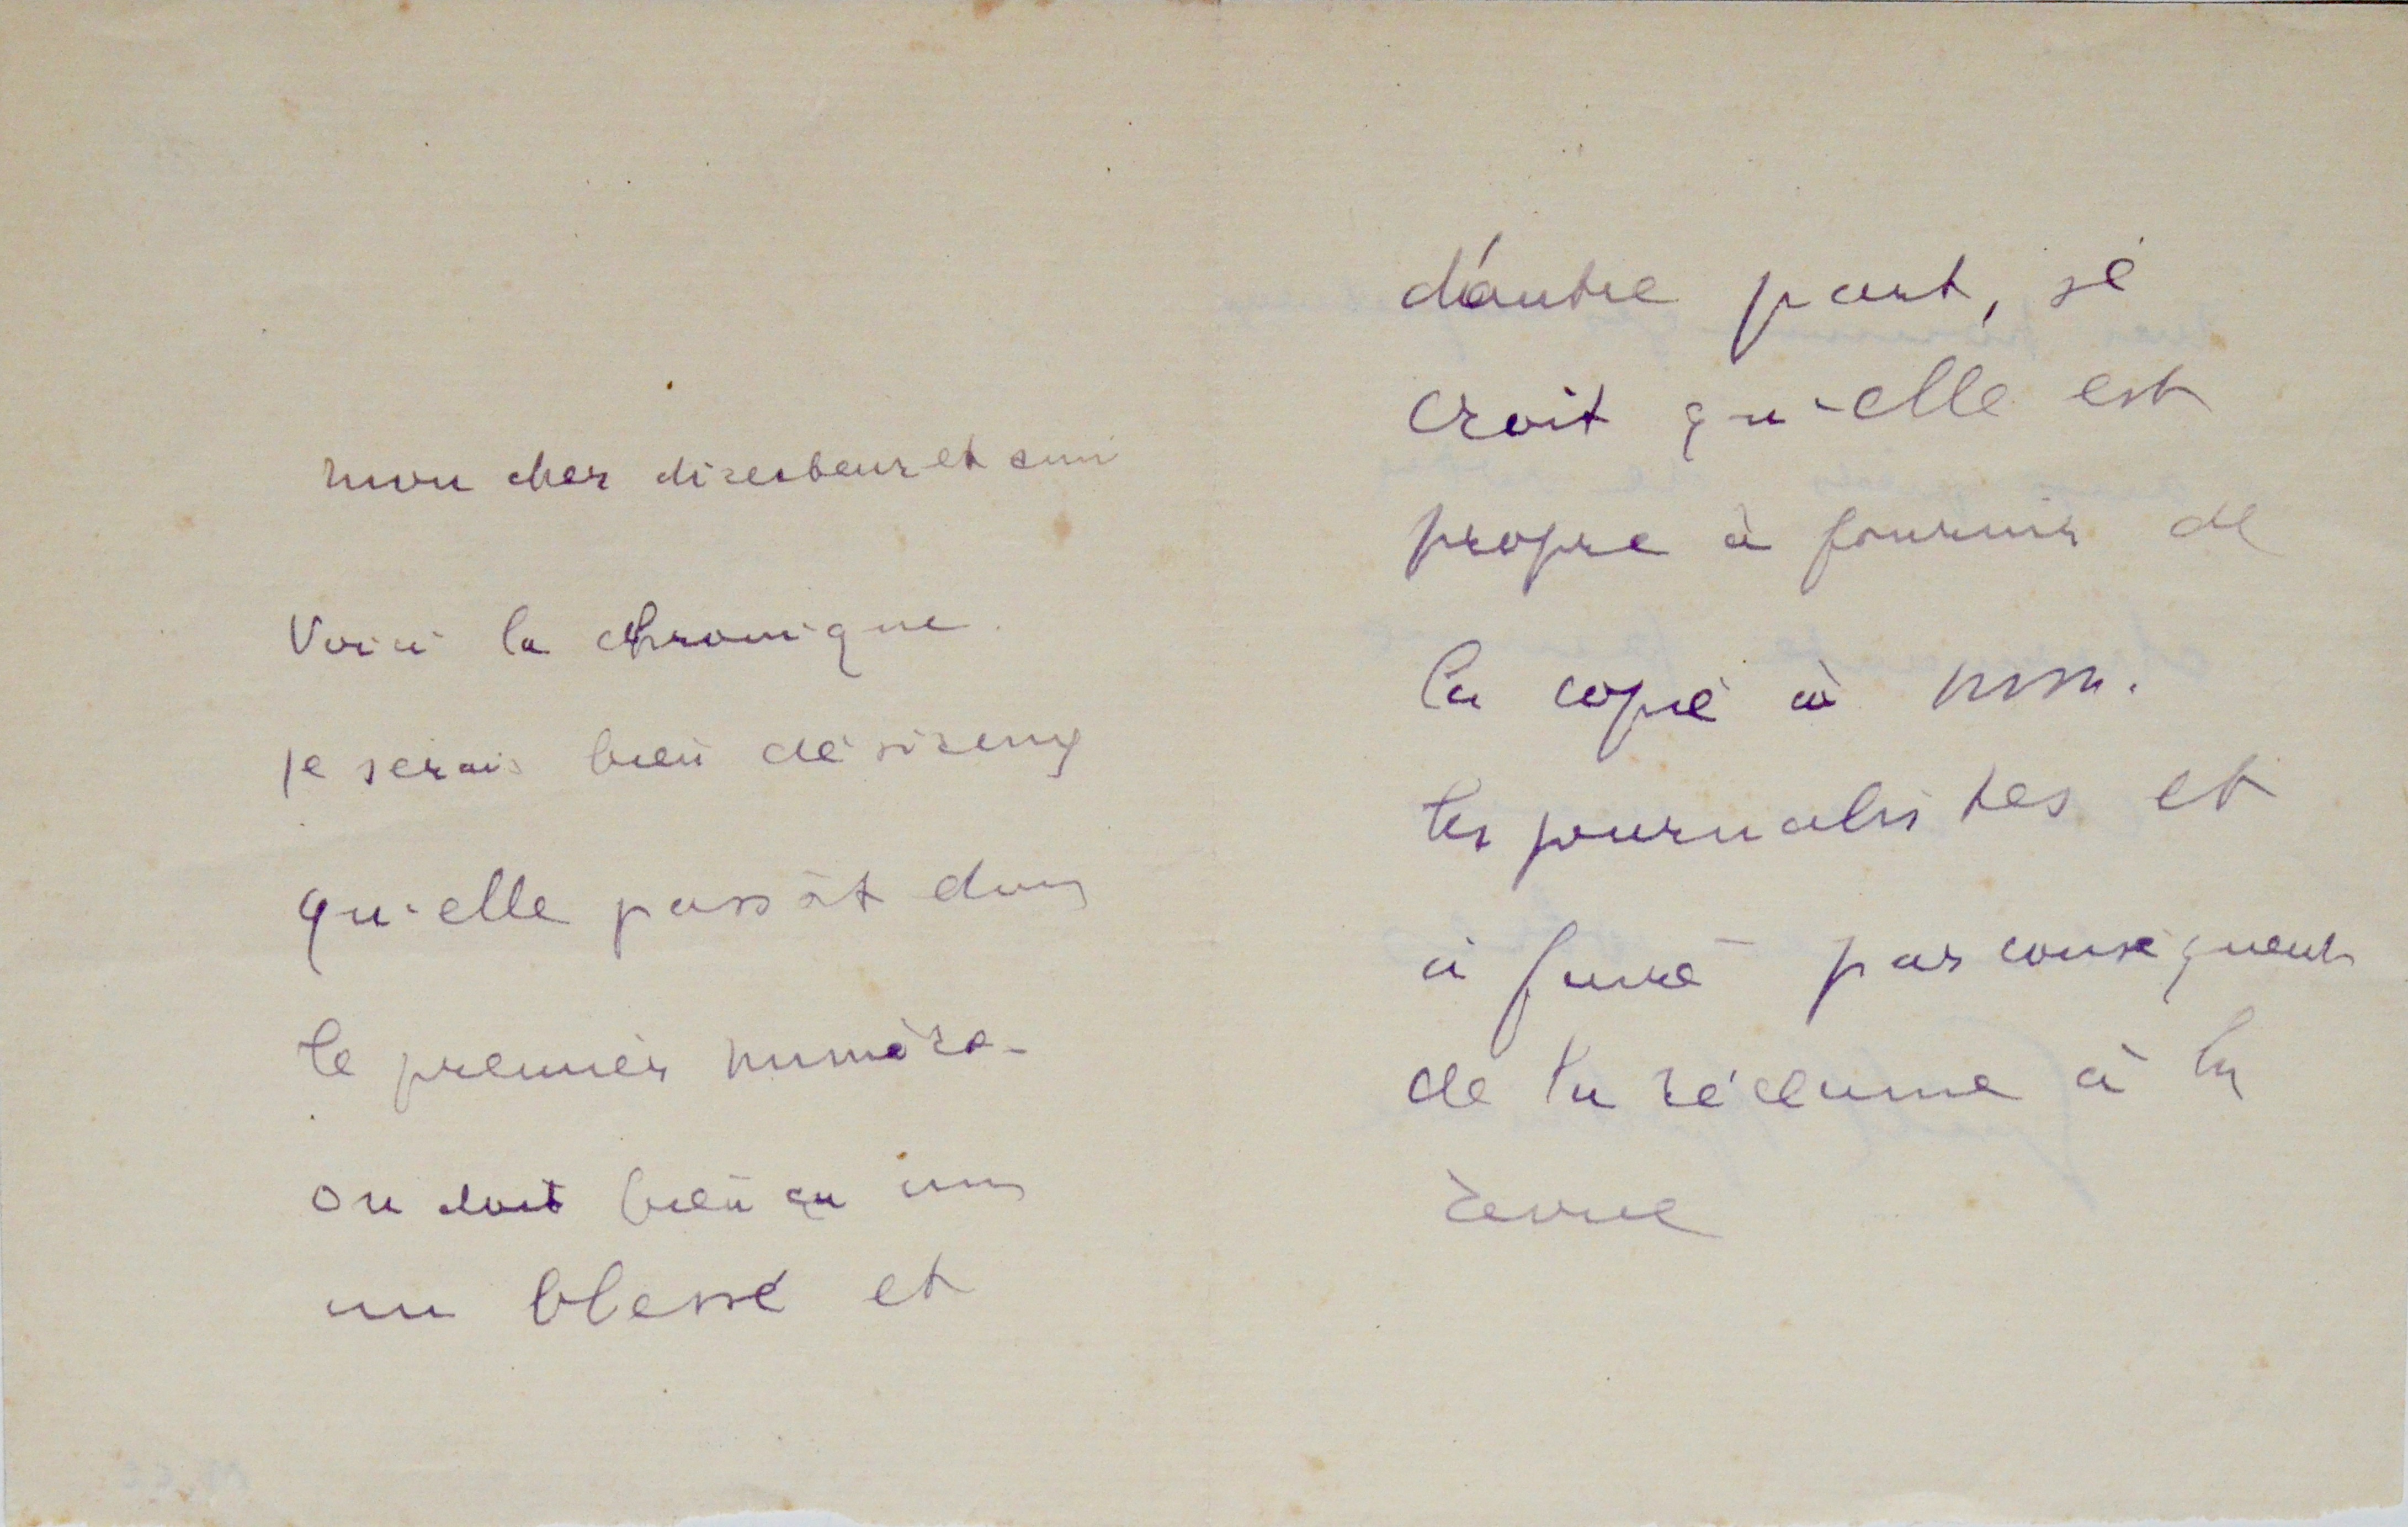 mon cher directeur et ami
Voici la chronique.
je serais bien désireux
qu'elle passât dans
le premier numéro -
on doit bien ça
un blessé et
d'autre part, je
crois qu'elle est
propre à fournir de
la copie à mm.
les journalistes et
à faire par conséquent
de la réclame à la
revue